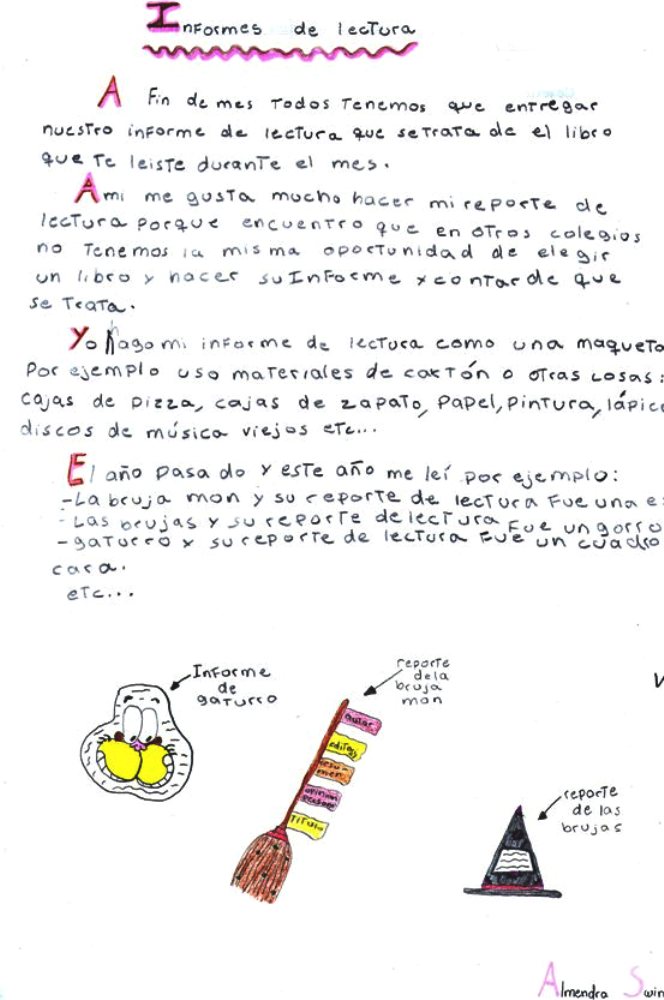 Informes de lectura
A Fin de mes todos tenemos que entregar
nuestro informe de lectura que se trata de el libro
que te leiste durante el mes.
A mi me gusta mucho hacer mi reporte de
lectura porque encuentro que en otros colegios
no tenemos la misma oportunidad de elegir
un libro y hacer su Informe y contar de que
se trata.
Yo hago mi informe de lectura como una maqueta
Por ejemplo uso materiales de cartón o otras cosas:
cajas de pizza, cajas de zapato, papel, pintura, lápice
discos de música viejos etc...
El año pasado y este año me leí por ejemplo:
- La bruja mon y su reporte de lectura fue una es
- Las brujas y su reporte de lectura fue un gorro
- gaturro y su reporte de lectura fue un cuadro
cara.
etc...
Informe
de
gaturro
reporte
dela
bruja
mon
autor
editorial
resumen
opinion
personal
Título
reporte
de las
brujas
Almendra Swin